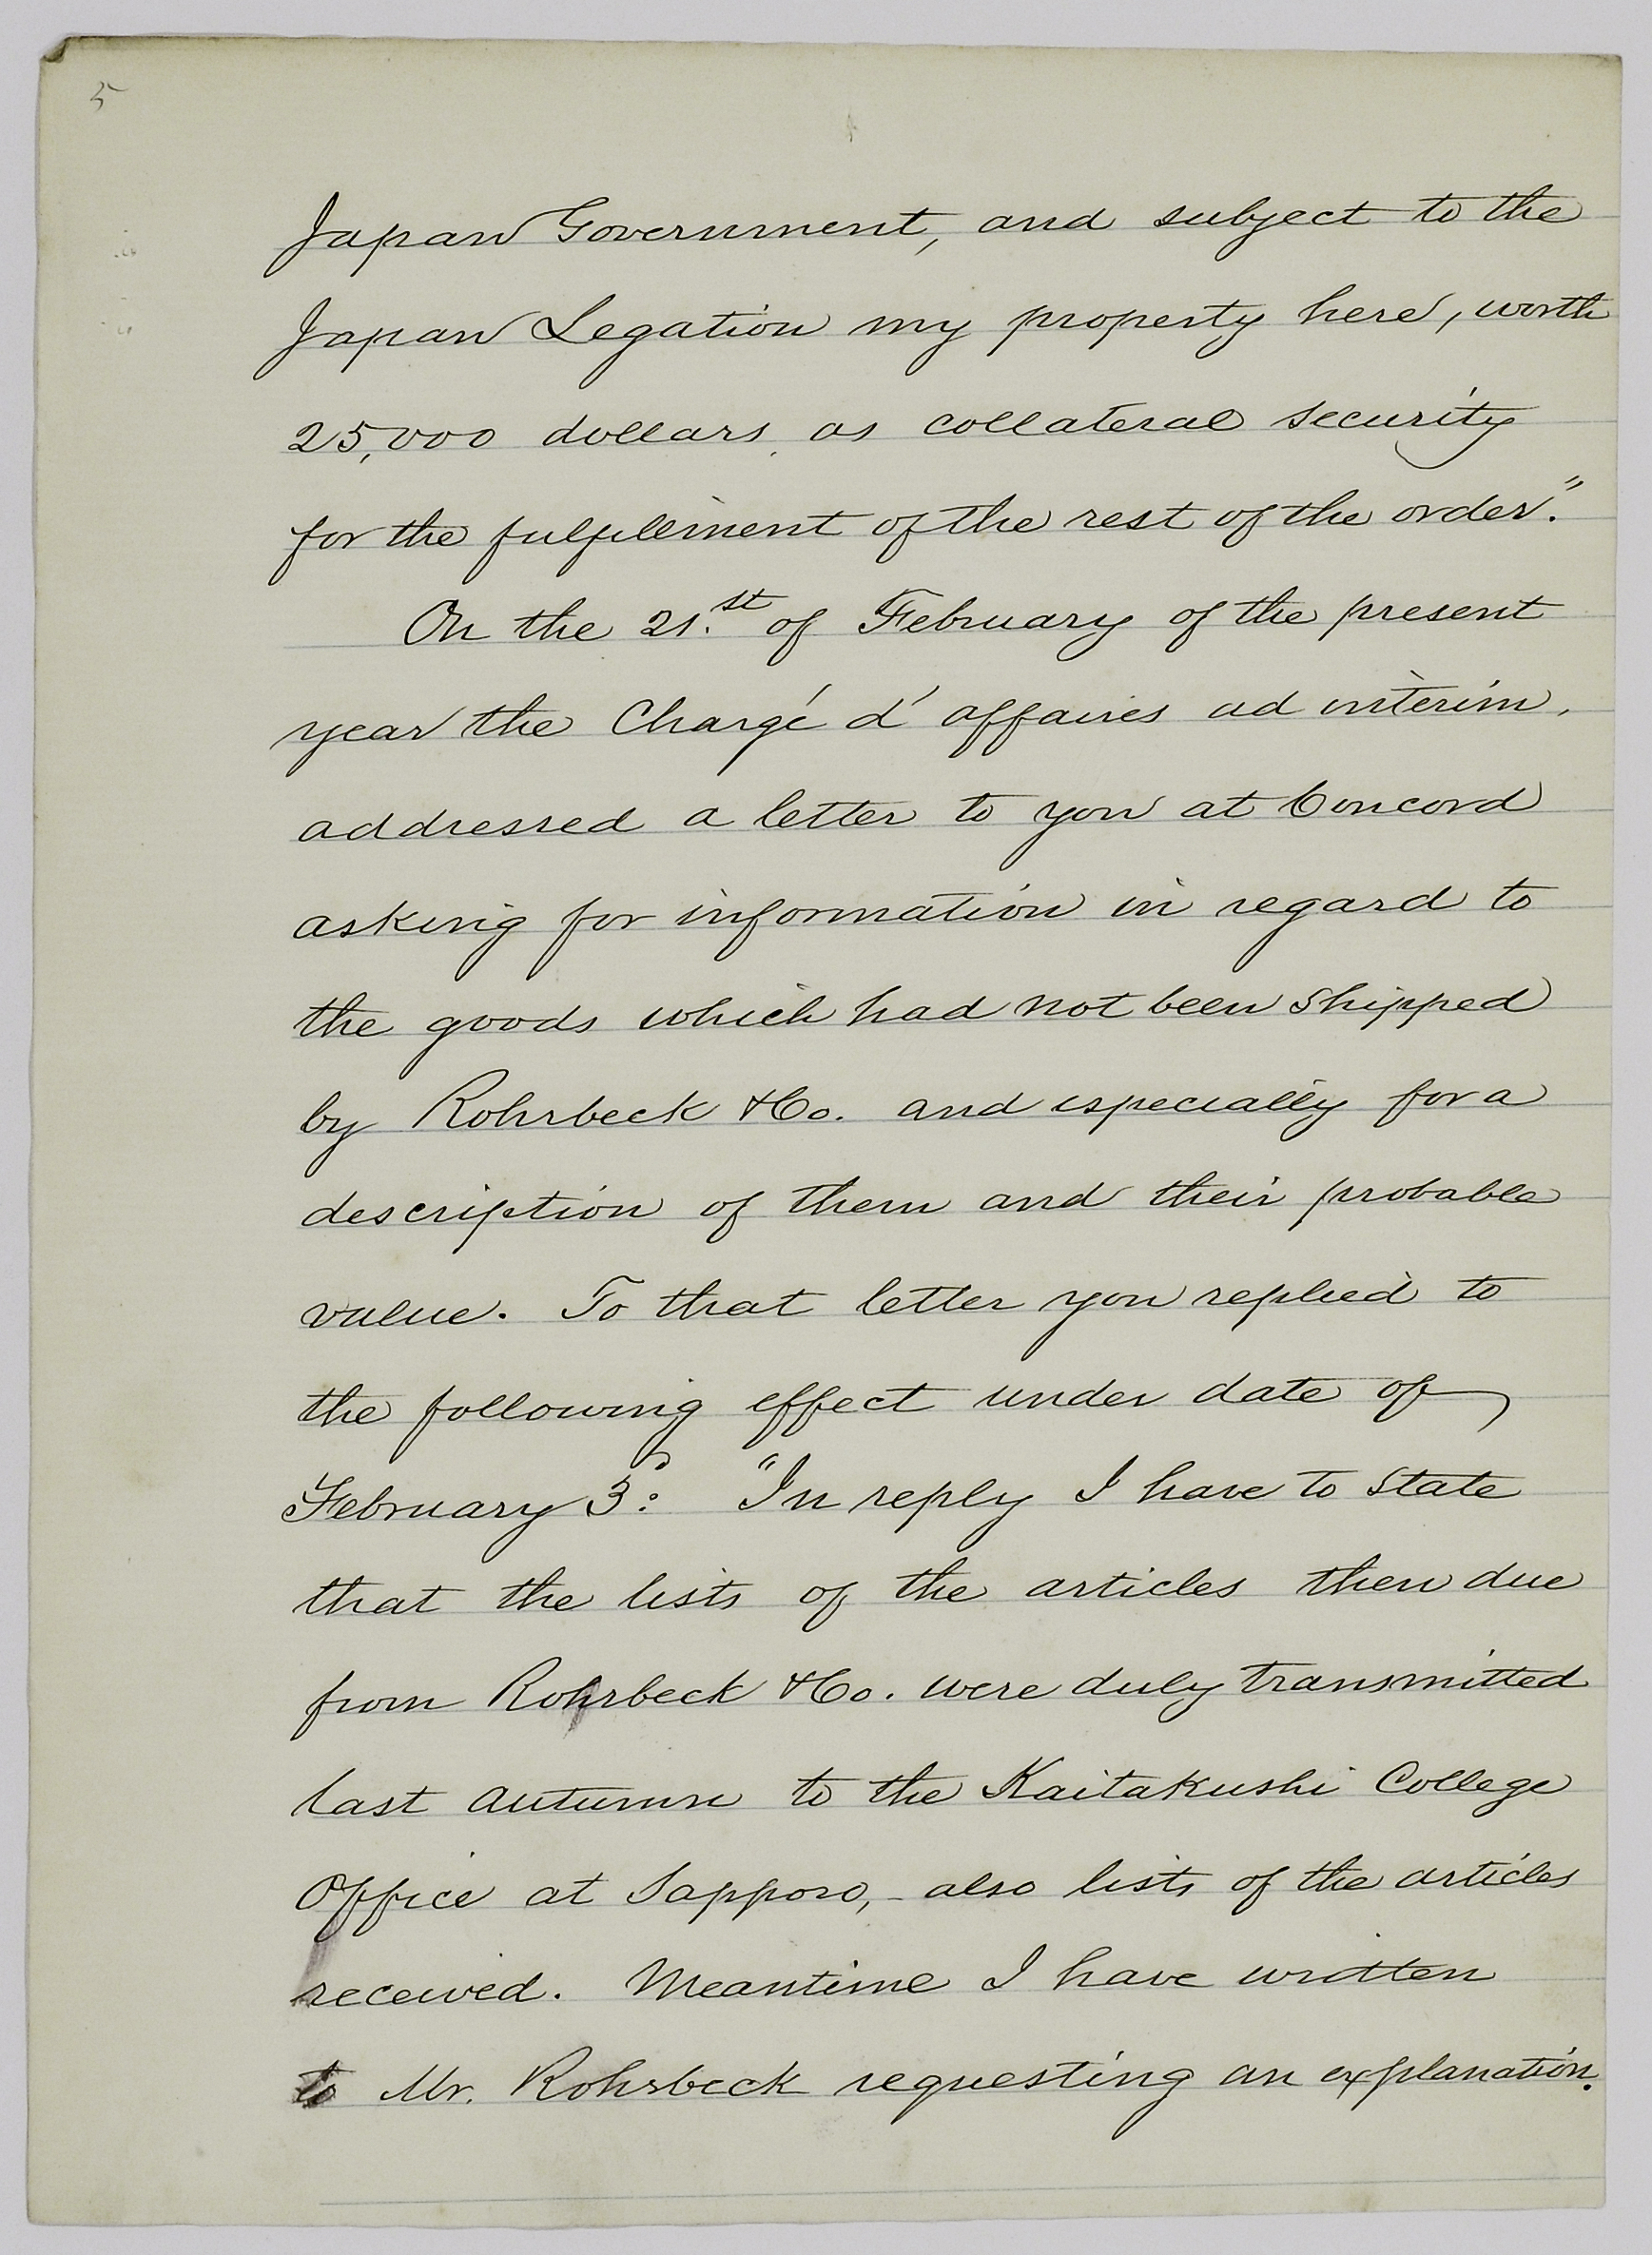 5
Japan Government, and subject to the
Japan Legation my property here, worth
25,000 dollars, as collateral security
for the fulfillment of the rest of the order."
On the 21.st of February of the present
year the Chargé d'affaires ad interim,
addressed a letter to you at Concord
asking for information in regard to
the goods which had not been shipped
by Rohrbeck & Co. and especially for a
description of them and their probable
value. To that letter you replied to
the following effect under date of
February 3d: "In reply I have to state
that the lists of the articles then due
from Rohrbeck & Co. were duly transmitted
last autumn to the Kaitakushi College
Office at Sapporo, - also lists of the articles
received. Meantime I have written
to Mr. Rohrbeck requesting an explanation.